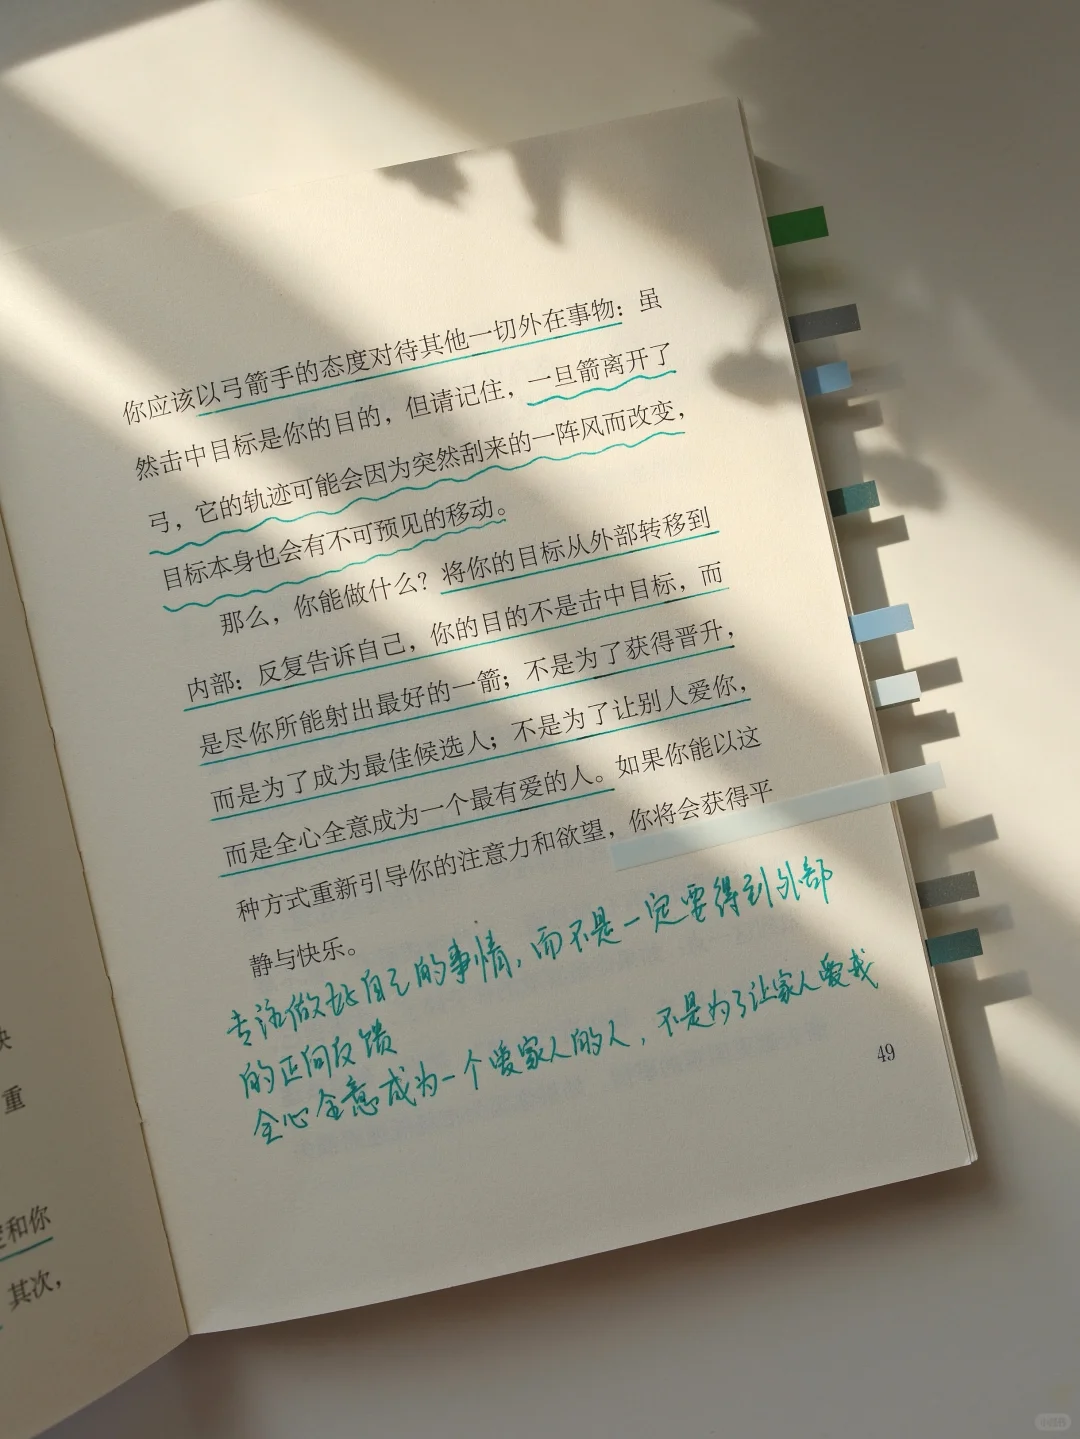 你应该以弓箭手的态度对待其他一切外在事物：虽
然击中目标是你的目的，但请记住，一旦箭离开了
弓，它的轨迹可能会因为突然刮来的一阵风而改变，
目标本身也会有不可预见的移动。
那么，你能做什么？将你的目标从外部转移到
内部：反复告诉自己，你的目的不是击中目标，而
是尽你所能射出最好的一箭；不是为了获得晋升，
而是为了成为最佳候选人；不是为了让别人爱你，
而是全心全意成为一个最有爱的人。如果你能以这
种方式重新引导你的注意力和欲望，你将会获得平
静与快乐。
专注做好自己的事情，而不是一定要得到外部
的正向反馈
全心全意成为一个爱家人的人，不是为了让家人爱我
49
重
和你
其次，